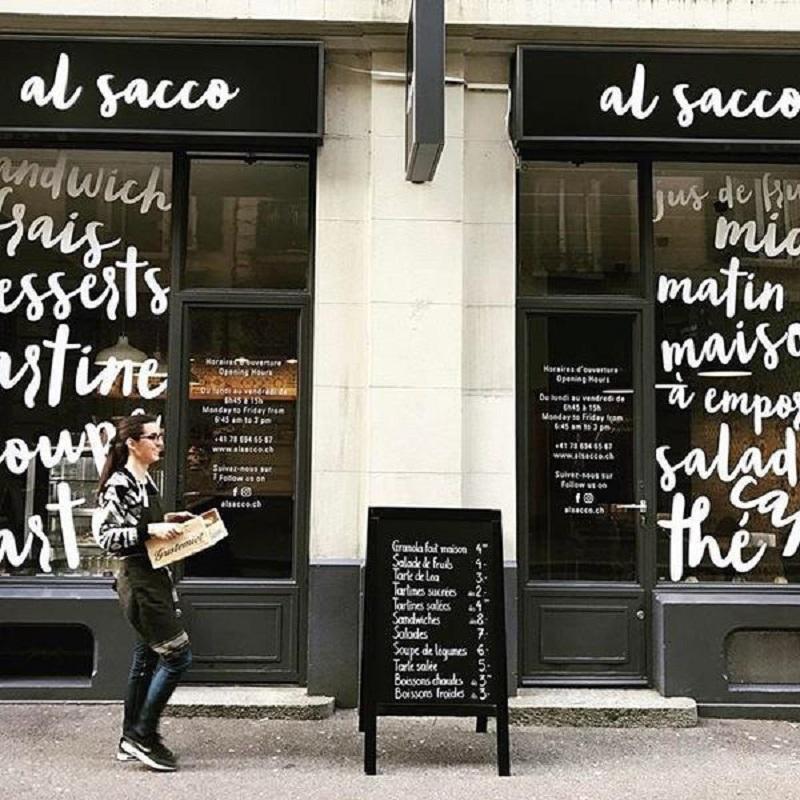 al sacco
al sacco
andwich
frais
esserts
artine
oup
art
Horaires d'ouverture
Opening Hours
Du lundi au vendredi de
6h45 à 15h
Monday to Friday from
6:45 am to 3 pm
+41 78 694 65 87
www.alsacco.ch
Suivez-nous sur
Follow us on
alsacco.ch
Gustomici
Granola fait maison 4
Salade de fruits 4.-
Tarte de Loa 3.-
Tartines sucrées 2.-
Tartines salées 4
Sandwiches 8.-
Salades 7.-
Soupe de légumes 6.-
Tarte salée 5.-
Boissons chaudes 3
Boissons froides 3.-
Horaires d'ouverture
Opening Hours
Du lundi au vendredi de
6h45 à 15h
Monday to Friday from
6:45 am to 3 pm
+41 78 694 65 87
www.alsacco.ch
Suivez-nous sur
Follow us on
alsacco.ch
jus de fru
mid
matin
maiso
à empor
salad
ca
thé